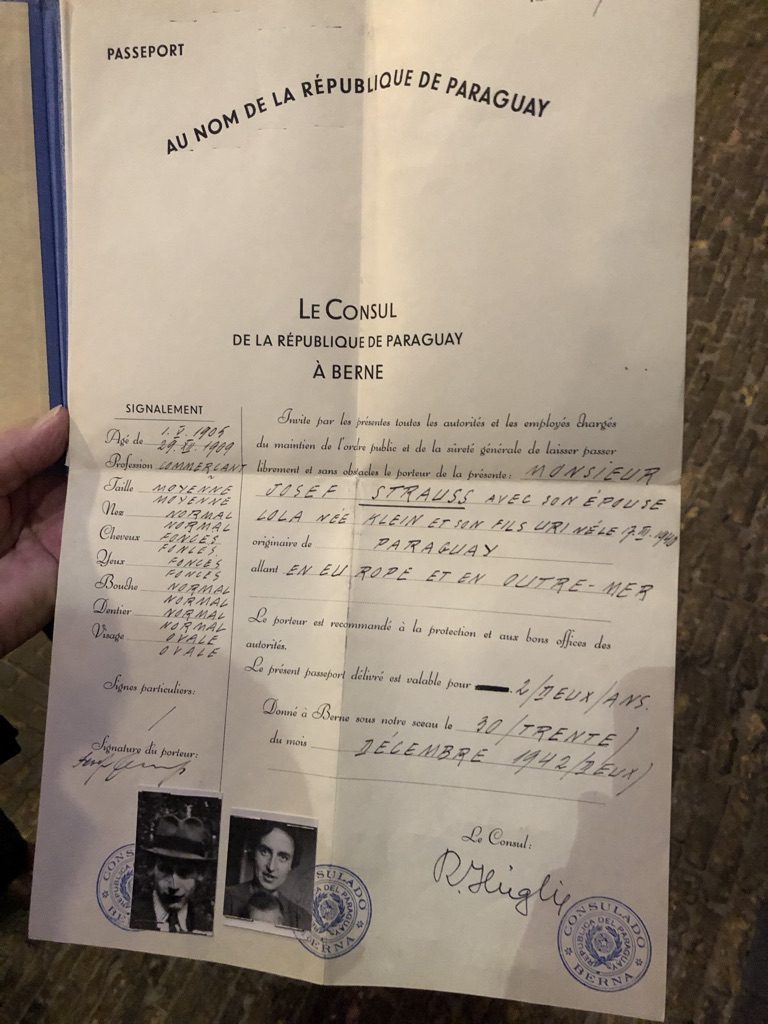 PASSEPORT
AU NOM DE LA RÉPUBLIQUE DE PARAGUAY
LE CONSUL
DE LA RÉPUBLIQUE DE PARAGUAY
À BERNE
SIGNALEMENT
Agé de 1. V. 1905
Profession COMMERÇANT
Taille MOYENNE
MOYENNE
Nez NORMAL
NORMAL
Cheveux FONCÉS
FONCÉS
Yeux FONCÉS
FONCÉS
Bouche NORMAL
NORMAL
Dentier NORMAL
NORMAL
Visage OVALE
OVALE
Signes particuliers:
/
Signature du porteur:
Invite par les présentes toutes les autorités et les employés chargés
du maintien de l'ordre public et de la sûreté générale de laisser passer
librement et sans obstacles le porteur de la présente: MONSIEUR
JOSEF STRAUSS AVEC SON ÉPOUSE
LOLA NÉE KLEIN ET SON FILS URI NÉ LE
originaire de PARAGUAY
allant EN EUROPE ET EN OUTRE-MER
Le porteur est recommandé à la protection et aux bons offices des
autorités.
Le présent passeport délivré est valable pour 2/DEUX/ANS.
Donné à Berne sous notre sceau le 30/TRENTE/
du mois DÉCEMBRE 1942/DEUX/
Le Consul:
R. Hügli
CONSULADO
BERNA
CONSULADO
REPUBLICA DEL PARAGUAY
BERNA
CONSULADO
REPUBLICA DEL PARAGUAY
BERNA